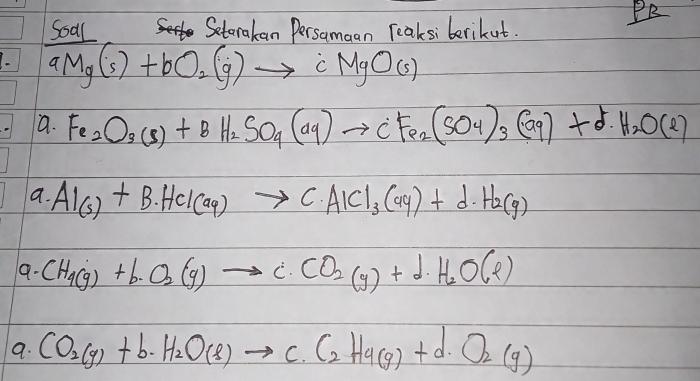 PR
Soal Setarakan Persamaan reaksi berikut.
aMg(s) + bO₂(g) → c MgO(s)
a. Fe₂O₃(s) + B H₂SO₄(aq) → c Fe₂(SO₄)₃(aq) + d. H₂O(l)
a. Al(s) + B. HCl(aq) → C. AlCl₃(aq) + d. H₂(g)
a. CH₄(g) + b. O₂(g) → c. CO₂(g) + d. H₂O(l)
a. CO₂(g) + b. H₂O(l) → c. C₂H₄(g) + d. O₂(g)